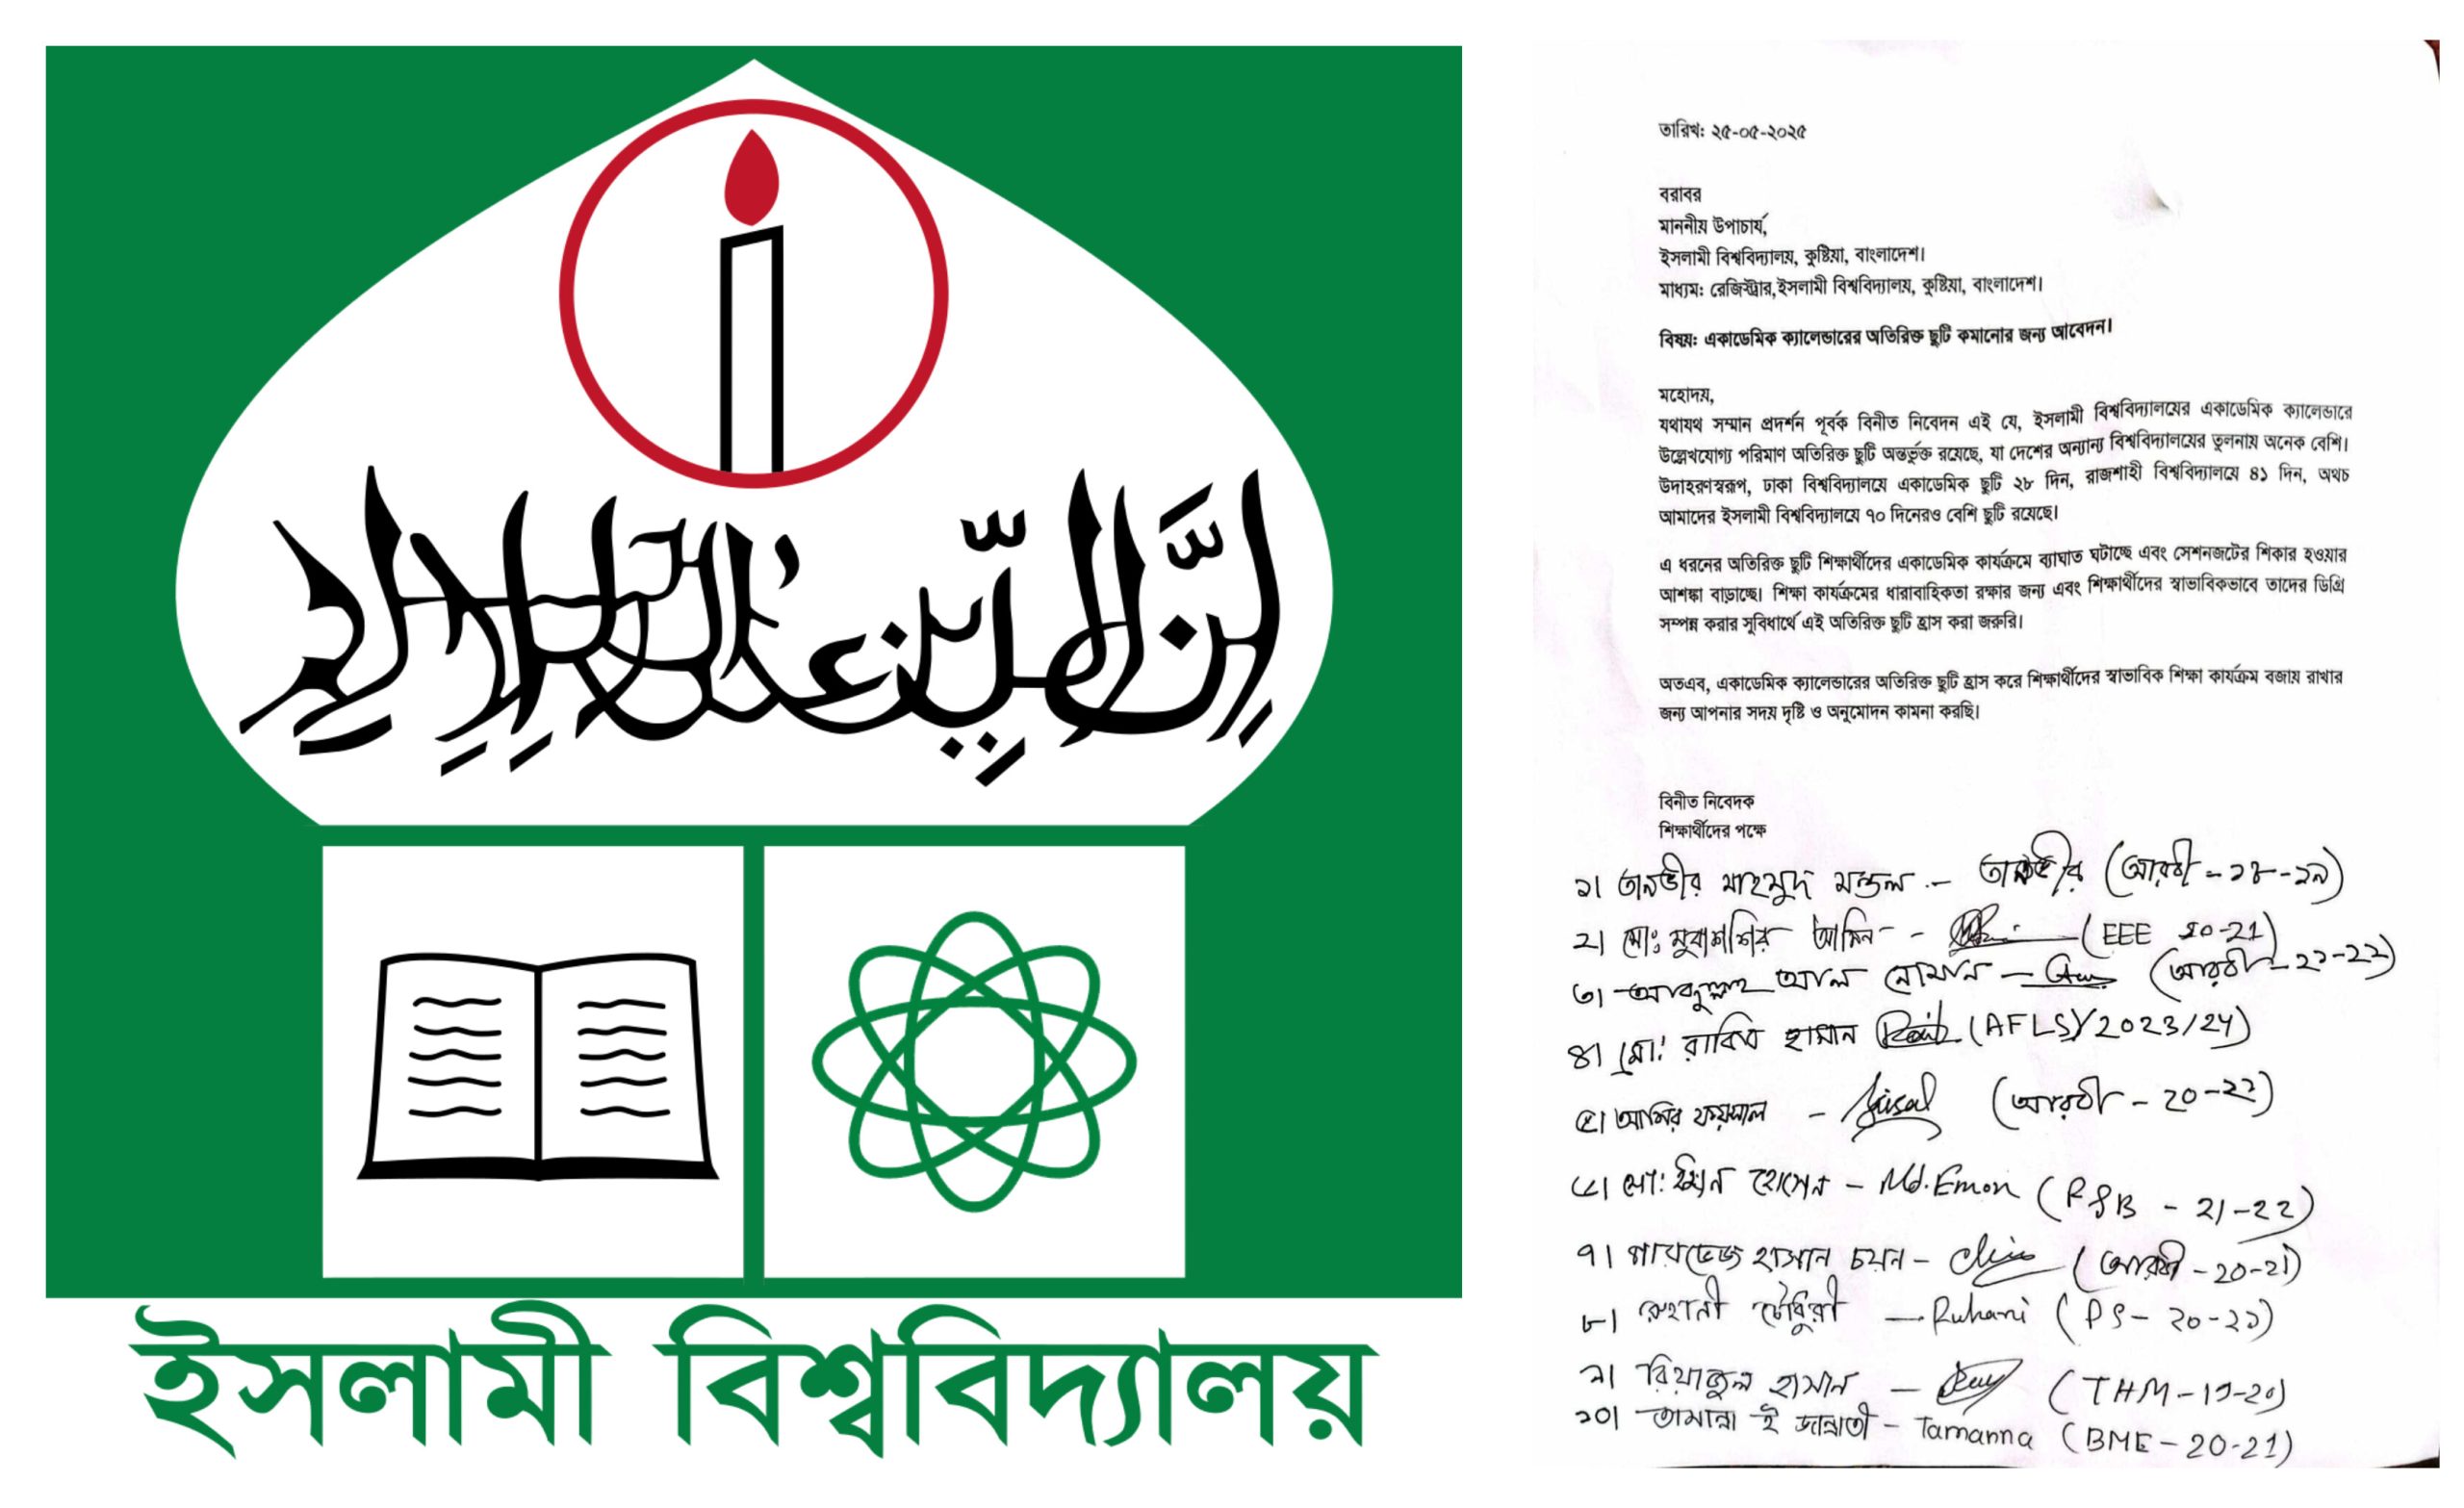 إن الدين عند الله الإسلام
ইসলামী বিশ্ববিদ্যালয়
তারিখ: ২৫-০৫-২০২৫
বরাবর
মাননীয় উপাচার্য,
ইসলামী বিশ্ববিদ্যালয়, কুষ্টিয়া, বাংলাদেশ।
মাধ্যম: রেজিস্ট্রার,ইসলামী বিশ্ববিদ্যালয়, কুষ্টিয়া, বাংলাদেশ।
বিষয়: একাডেমিক ক্যালেন্ডারের অতিরিক্ত ছুটি কমানোর জন্য আবেদন।
মহোদয়,
যথাযথ সম্মান প্রদর্শন পূর্বক বিনীত নিবেদন এই যে, ইসলামী বিশ্ববিদ্যালয়ের একাডেমিক ক্যালেন্ডারে
উল্লেখযোগ্য পরিমাণ অতিরিক্ত ছুটি অন্তর্ভুক্ত রয়েছে, যা দেশের অন্যান্য বিশ্ববিদ্যালয়ের তুলনায় অনেক বেশি।
উদাহরণস্বরূপ, ঢাকা বিশ্ববিদ্যালয়ে একাডেমিক ছুটি ২৮ দিন, রাজশাহী বিশ্ববিদ্যালয়ে ৪১ দিন, অথচ
আমাদের ইসলামী বিশ্ববিদ্যালয়ে ৭০ দিনেরও বেশি ছুটি রয়েছে।
এ ধরনের অতিরিক্ত ছুটি শিক্ষার্থীদের একাডেমিক কার্যক্রমে ব্যাঘাত ঘটাচ্ছে এবং সেশনজটের শিকার হওয়ার
আশঙ্কা বাড়াচ্ছে। শিক্ষা কার্যক্রমের ধারাবাহিকতা রক্ষার জন্য এবং শিক্ষার্থীদের স্বাভাবিকভাবে তাদের ডিগ্রি
সম্পন্ন করার সুবিধার্থে এই অতিরিক্ত ছুটি হ্রাস করা জরুরি।
অতএব, একাডেমিক ক্যালেন্ডারের অতিরিক্ত ছুটি হ্রাস করে শিক্ষার্থীদের স্বাভাবিক শিক্ষা কার্যক্রম বজায় রাখার
জন্য আপনার সদয় দৃষ্টি ও অনুমোদন কামনা করছি।
বিনীত নিবেদক
শিক্ষার্থীদের পক্ষে
১। তানভীর মাহমুদ মন্ডল - তানভীর (আরবী - ১৮-১৯)
২। মোঃ মুবাশশির আমিন - (EEE 20-21)
৩। আব্দুল্লাহ আল নোমান - (আরবী - ২১-২২)
৪। মো: রাকিব হাসান (AFLS)/2023/24)
৫। আমির ফয়সাল - faisal (আরবী - ২০-২১)
৬। মো: ইমন হোসেন - Md. Emon (F&B - 21-22)
৭। পারভেজ হাসান চয়ন - (আরবী - 20-21)
৮। রুহানী চৌধুরী - Ruhani (PS - ২০-২১)
৯। রিয়াজুল হাসান - (THM - 19-20)
১০। তামান্না ই জান্নাতী - Tamanna (BME - 20-21)